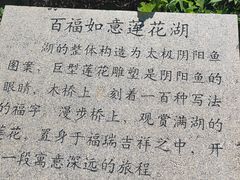 百福如意莲花湖
湖的整体构造为太极阴阳鱼
图案，巨型莲花雕塑是阴阳鱼的
眼睛，木桥上，刻着一百种写法
的福字，漫步桥上，观赏满湖的
莲花，置身于福瑞吉祥之中，开
一段寓意深远的旅程